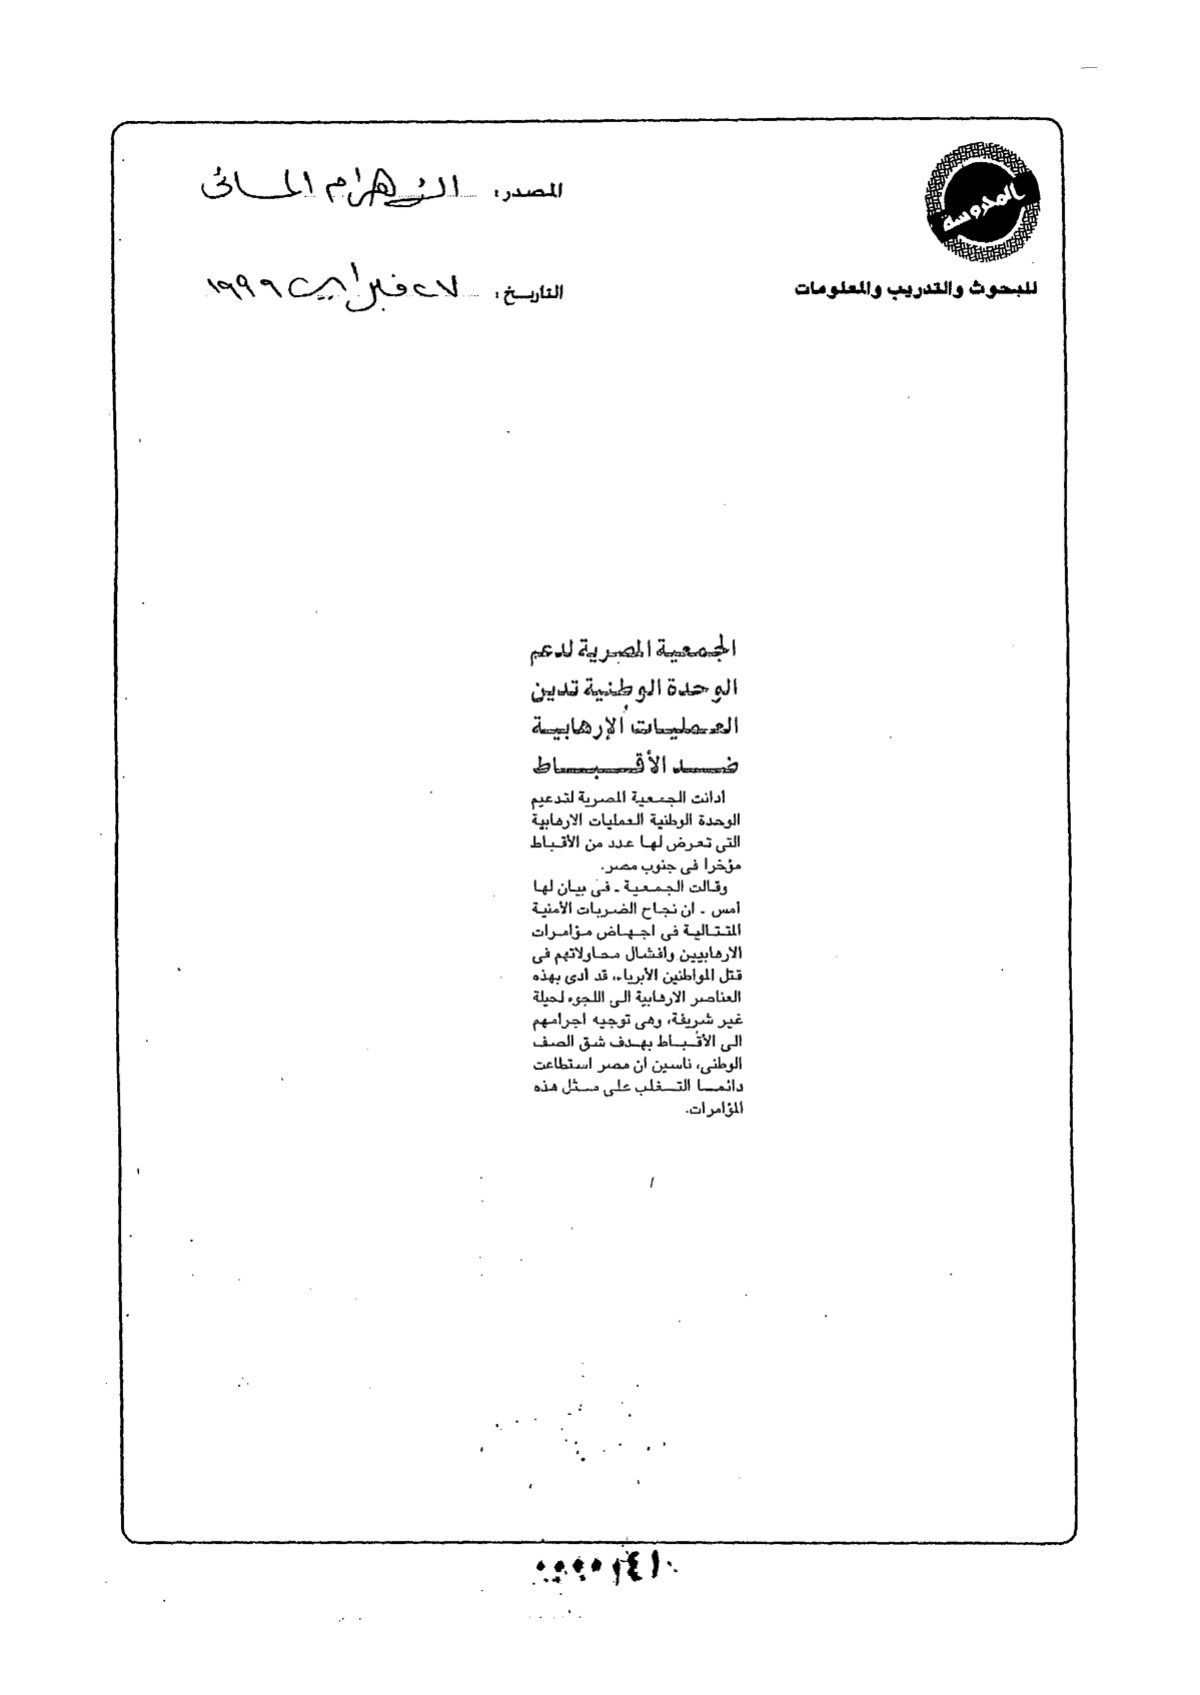 المحروسة
للبحوث والتدريب والمعلومات
المصدر: الأهرام المسائى
التاريخ: فبراير ١٩٩٩
الجمعية المصرية لدعم
الوحدة الوطنية تدين
العمليات الإرهابية
ضد الأقباط
أدانت الجمعية المصرية لتدعيم
الوحدة الوطنية العمليات الارهابية
التى تعرض لها عدد من الأقباط
مؤخرا فى جنوب مصر.
وقالت الجمعية ـ فى بيان لها
أمس ـ ان نجاح الضربات الأمنية
المتتالية فى اجهاض مؤامرات
الارهابيين وافشال محاولاتهم فى
قتل المواطنين الأبرياء، قد أدى بهذه
العناصر الارهابية الى اللجوء لحيلة
غير شريفة، وهى توجيه اجرامهم
الى الأقباط بهدف شق الصف
الوطنى، ناسين ان مصر استطاعت
دائما التغلب على مثل هذه
المؤامرات.